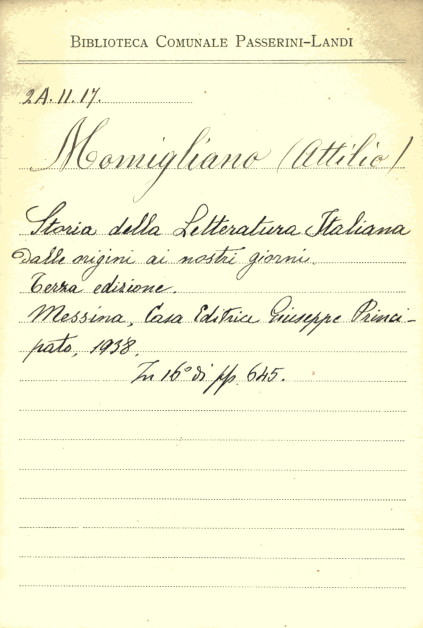 BIBLIOTECA COMUNALE PASSERINI-LANDI
2A.11.17.
Momigliano (Attilio)
Storia della Letteratura Italiana
dalle origini ai nostri giorni.
Terza edizione.
Messina, Casa Editrice Giuseppe Princi-
pato, 1938.
In 16° di pp. 645.